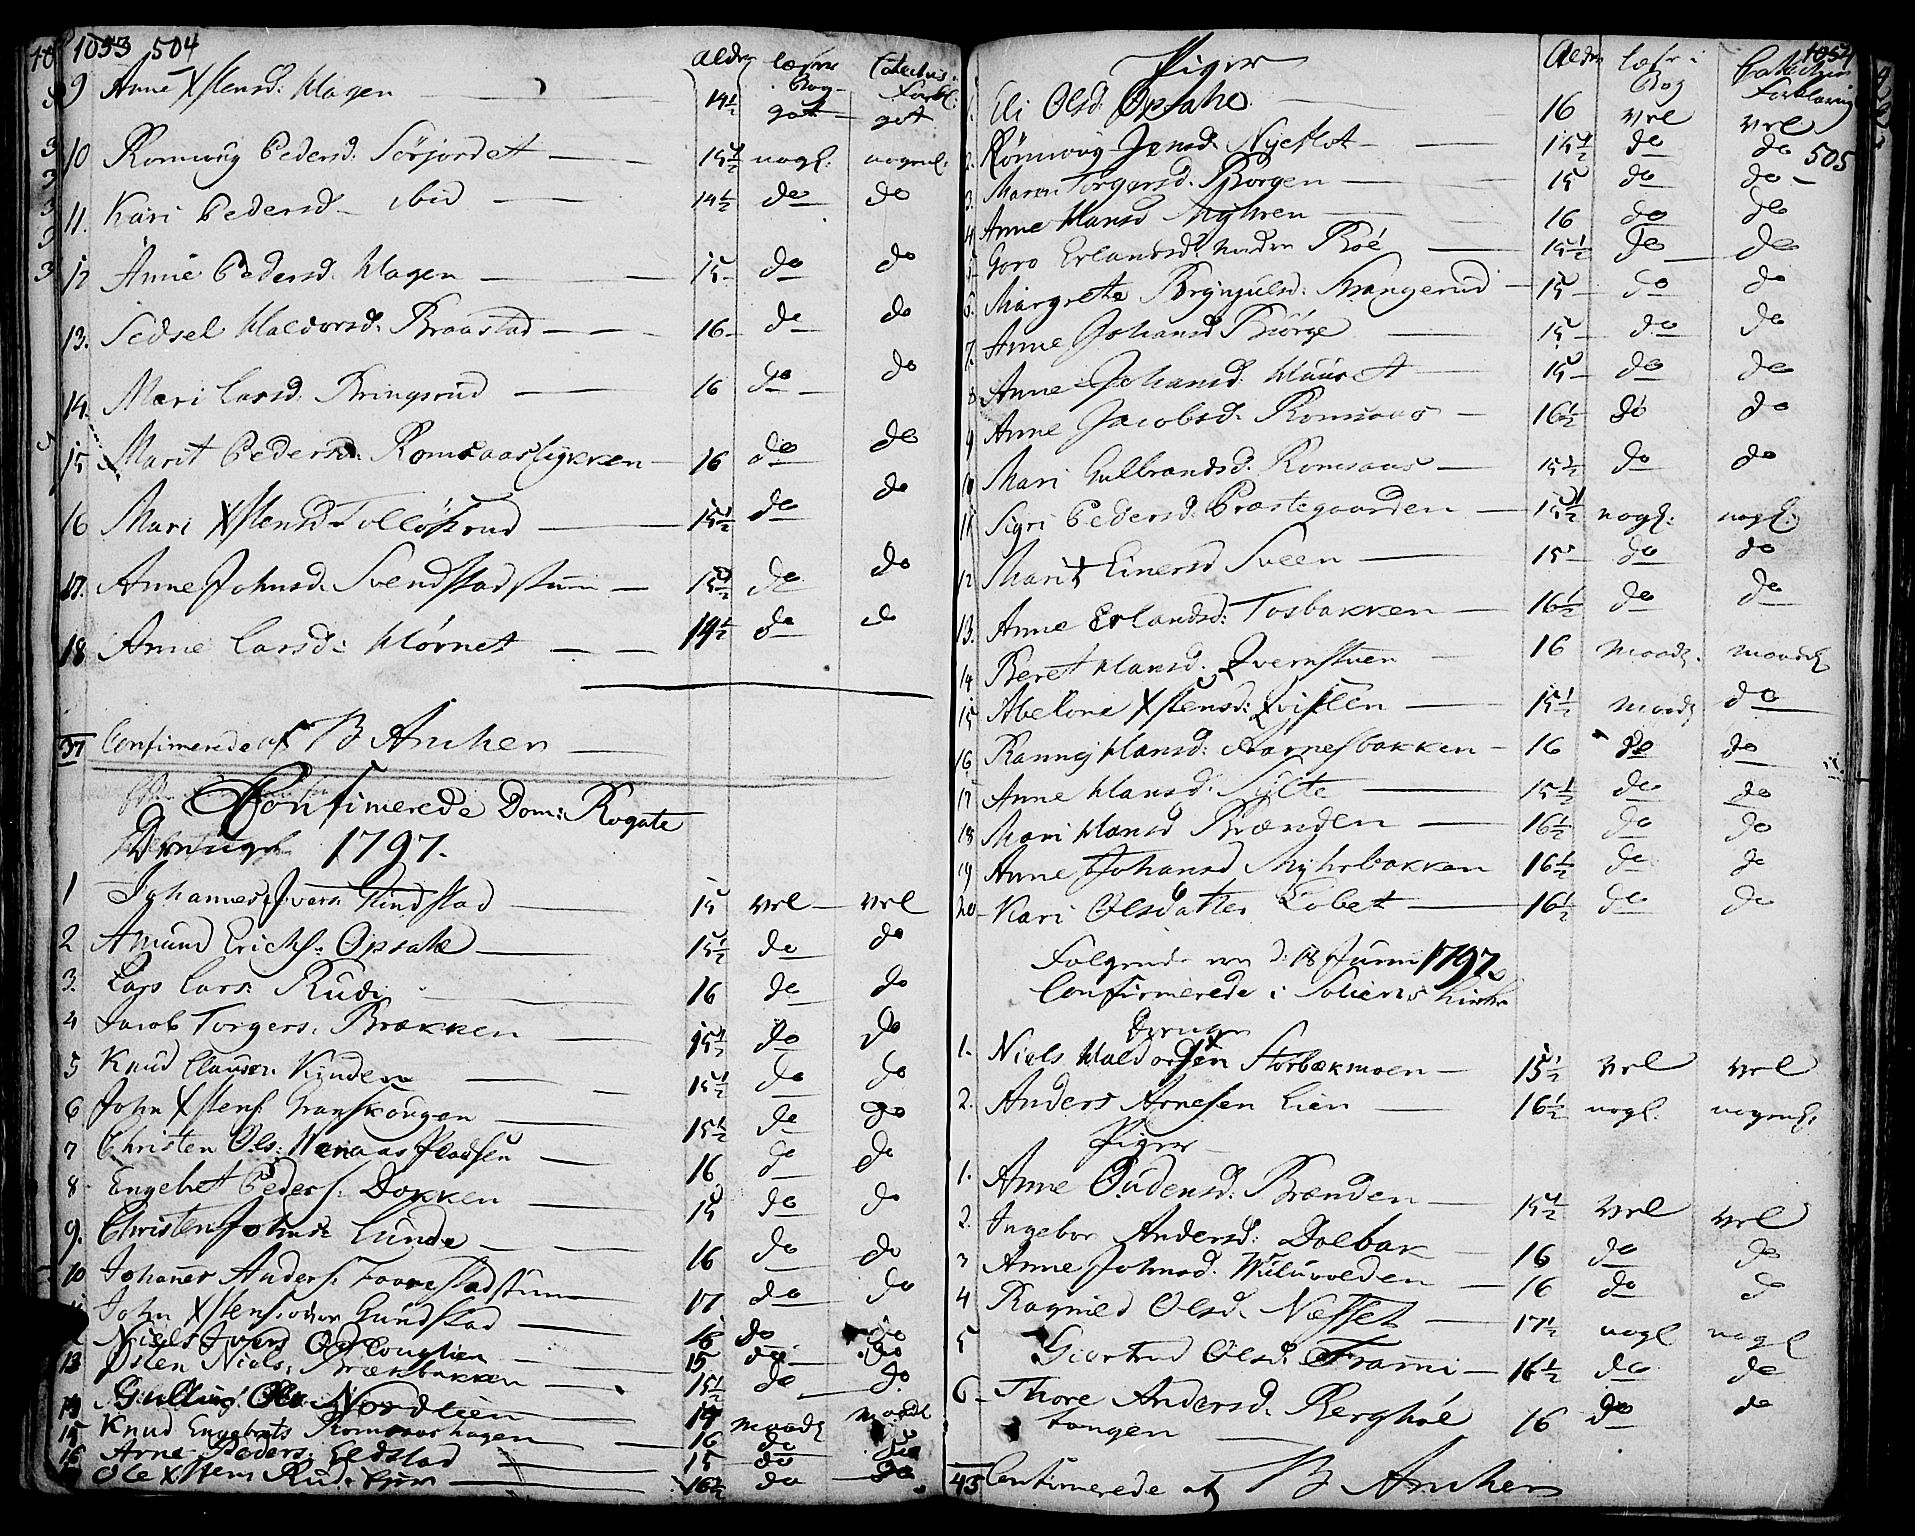 1053 504
Alder læser i Bog Catechis: Forkl:
9) Anne Xstensd: Hagen 14½ got got
10 Romoug Pedersd: Sørjordet 15½ nogl: nogenl:
11. Kari Pedersd. ibid 14½ do do
12 Anne Pedersd. Hagen 15 do do
13. Sedsel Haldorsd. Braastad 16 do do
14. Mari Larsd. Bringsrud 16 do do
15 Marit Pedersd. Romsaaslykken 16 do do
16 Mari Xstensd. Tollöfsrud 15½ do do
17. Anne Johnsd. Svendstadstuen 15½ do do
18 Anne Larsd: Hörnet 19½ do do
37 Confirmerede af B Ancher
Confirmerede Dom: Rogate
Drenge 1797.
1 Johannes Ivers: Kindstad 15 vel vel
2 Amund Erichs: Opsahl 15½ do do
3. Lars Lars: Rudi 16 do do
4 Jacob Torgers. Brækken 15½ do do
5 Knud Clausen Kinden 15½ do do
6 John Xstens. Granskougen 15½ do do
7 Christen Ols: 16 do do
8 Engebret Peders: Dokken 15 do do
9. Christen Johns. Lunde 16 do do
10 Johannes Anders. Taarestadstuen 17 do do
John Xstens. Gundstad 16 do do
Niels Ivers 15 do do
13 Østen Niels. Brækbakken 15½ do do
14 Ols: Nordlien 19 maadl maadl
15 Knud Engebrets Romsaashagen 16 do do
16 Arne Peders. Eldstad 15 do do
Ole Xstens 16½ do do
1054
505
Piger Alder læser i Bog Catechis Forklaring
1. Eli Olsd. Opsahl 16 vel vel
2. Rønnoug Jensd. Nyeflot 15½ do do
3. Maren Torgersd. Borgen 15 do do
4. Anne Hansd Myhren 16 do do
5 Goro Erlandsd. neden Roe 15½ do do
6. Margrethe Brynjulsd. Strangerud 15 do do
7. Anne Johansd. Biørge 15 do do
8 Anne Johansd. Hauret 15 do do
9 Anne Jacobsd. Romsaas 16½ do do
10 Mari Gulbrandsd. Romsaas 15½ do do
11 Sigri Pedersd. Præstegaarden 15½ nogl: nogl:
12 Marit Einersd Sveen 15 do do
13. Anne Erlandsd: Tosbakken 16½ do do
14 Beret Hansd. Qvernstuen 16 maadl. maadel
15 Abelone Xstensd: Qvislen 15½ maadl do
16 Rannej Hansd: Aarnesbakken 16 do do
17 Anne Hansd: Sylte 15½ do do
18 Mari Hansd Brænden 16½ do do
19 Anne Johansd Myhrbakken 16½ do do
20 Kari Olsdatter Löbet 16½ do do
Følgende ere d: 18 Junii 1797
Confirmerede i Soliens Kirke
Drenge
1. Niels Haldorsen Storbækmoen 15½ vel vel
2. Anders Arnesen Lien 16½ nogl. nogenl.
Piger
1. Anne Oudensd: Brænden 15½ vel vel
2. Ingebor Andersd: Dalbak 16 do do
3 Anne Johnsd. Uluvolden 16 do do
4 Ragnild Olsd. Næsset 17½ nogl nogl
5 Giertrud Olsd. Trønni 16½ do do
6 Thore Andersd. Berghöe tangen 16 do do
43 Confirmerede af B Ancher